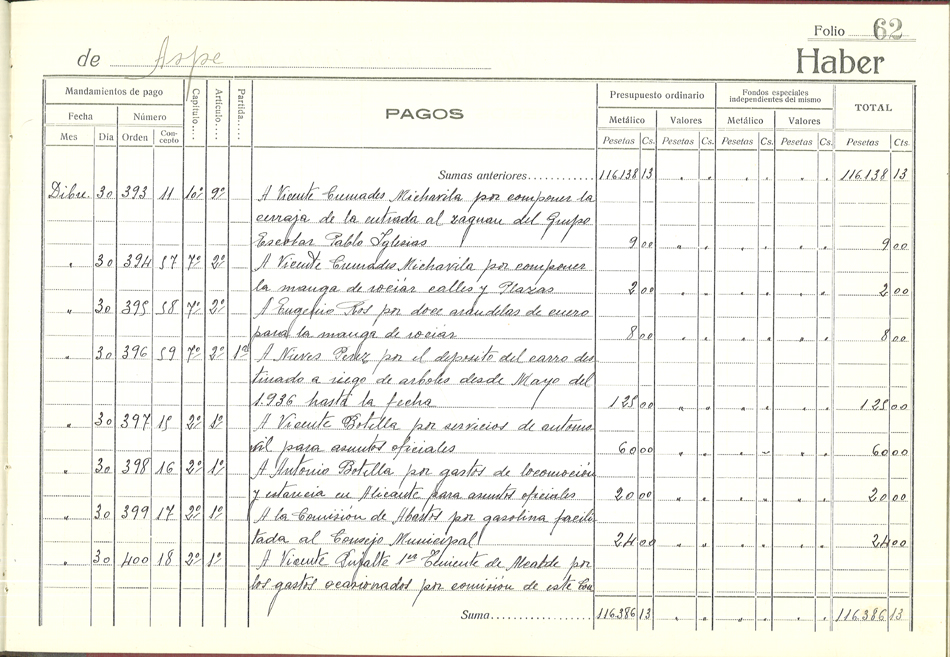 Folio 62
de Aspe Haber
Mandamientos de pago Capítulo.... Artículo.... Partida.... PAGOS Presupuesto ordinario Fondos especiales independientes del mismo TOTAL
Fecha Número Metálico Valores Metálico Valores
Mes Día Orden Concepto Pesetas Cs. Pesetas Cs. Pesetas Cs. Pesetas Cs. Pesetas Cts.
Sumas anteriores............ 116.138 13 " " " " " " 116.138 13
Dibre. 30 393 11 10º 9º A Vicente Cremades Michavila por componer la
cerraja de la entrada al zaguan del Grupo
Escolar Pablo Iglesias 9 00 " " " " " " 9 00
" 30 394 57 7º 2º A Vicente Cremades Michavila por componer
la manga de rociar calles y Plazas 2 00 " " " " " " 2 00
" 30 395 58 7º 2º A Eugenio Ros por doce arandelas de cuero
para la manga de rociar 8 00 " " " " " " 8 00
" 30 396 59 7º 2º 1ª A Nieves Perez por el deposito del carro des
tinado a riego de arboles desde Mayo del
1.936 hasta la fecha 125 00 " " " " " " 125 00
" 30 397 15 2º 1º A Vicente Botella por servicios de automo
vil para asuntos oficiales 60 00 " " " " " " 60 00
" 30 398 16 2º 1º A Antonio Botella por gastos de locomoción
y estancia en Alicante para asuntos oficiales 20 00 " " " " " " 20 00
" 30 399 17 2º 1º A la Comisión de Abastos por gasolina facili
tada al Consejo Municipal 24 00 " " " " " " 24 00
" 30 400 18 2º 1º A Vicente 1er Teniente de Alcalde por
los gastos ocasionados por comisión de este Coa
Suma.................. 116.386 13 " " " " " " 116.386 13